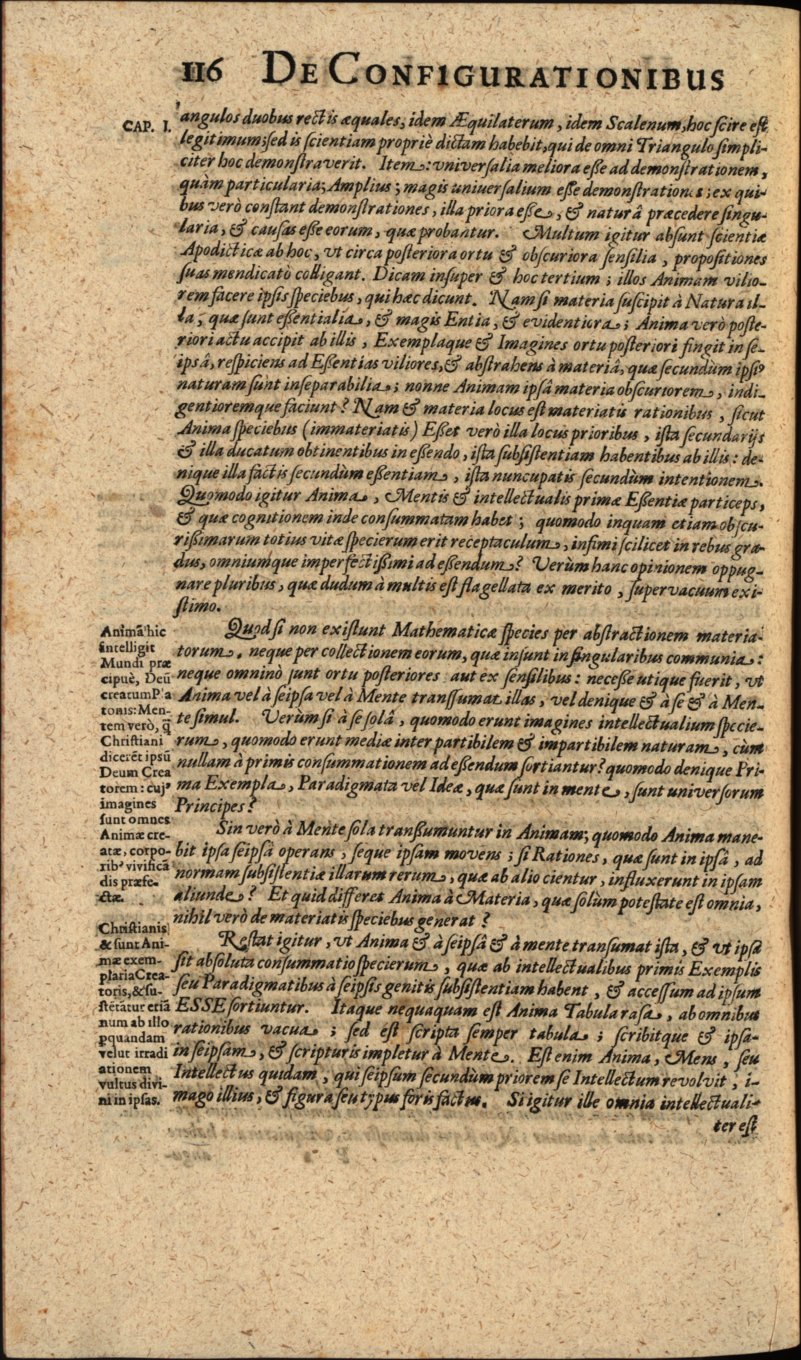 116 DE CONFIGURATIONIBUS
CAP. I.
angulos duobus rectis æquales, idem Æquilaterum, idem Scalenum, hoc scire est
legitimum; sed is scientiam propriè dictam habebit, qui de omni Triangulo simpli-
citer hoc demonstraverit. Item: vniversalia meliora esse ad demonstrationem,
quàm particularia; Amplius; magis uniuersalium esse demonstrationes; ex qui-
bus verò constant demonstrationes, illa priora esse, & naturâ præcedere singu-
laria, & causas esse eorum, quæ probantur. Multum igitur absunt scientiæ
Apodicticæ ab hoc, vt circa posteriora ortu & obscuriora sensilia, propositiones
suas mendicatò colligant. Dicam insuper & hoc tertium; illos Animam vilio-
rem facere ipsis speciebus, qui hæc dicunt. Nam si materia suscipit à Natura il-
la, quæ sunt essentialia, & magis Entia, & evidentiora; Anima verò poste-
riori actu accipit ab illis, Exemplaque & Imagines ortu posteriori fingit in se-
ipsâ, respiciens ad Essentias viliores, & abstrahens à materiâ, quæ secundùm ipsiꝰ
naturam sunt inseparabilia; nonne Animam ipsâ materia obscuriorem, indi-
gentioremque faciunt? Nam & materia locus est materiatis rationibus, sicut
Anima speciebus (immateriatis) Esset verò illa locus prioribus, ista secundarijs
& illa ducatum obtinentibus in essendo, ista subsistentiam habentibus ab illis: de-
nique illa factis secundùm essentiam, ista nuncupatis secundùm intentionem.
Quomodo igitur Anima, Mentis & intellectualis primæ Essentiæ particeps,
& quæ cognitionem inde consummatam habet; quomodo inquam etiam obscu-
rissimarum totius vitæ specierum erit receptaculum, infimi scilicet in rebus gra-
dus, omniumque imperfectissimi ad essendum? Verùm hanc opinionem oppug-
nare pluribus, quæ dudum à multis est flagellata ex merito, supervacuum exi-
stimo.
Quod si non existunt Mathematicæ species per abstractionem materia-
torum, neque per collectionem eorum, quæ insunt in singularibus communia:
neque omninò sunt ortu posteriores aut ex sensilibus: necesse utique fuerit, vt
Anima vel à seipsa vel à Mente transsumat illas, vel denique & à se & à Men-
te simul. Verùm si à se solâ, quomodo erunt imagines intellectualium specie-
rum, quomodo erunt mediæ inter partibilem & impartibilem naturam, cùm
nullam à primis consummationem ad essendum sortiantur? quomodo denique Pri-
ma Exempla, Paradigmata vel Ideæ, quæ sunt in mente, sunt universorum
Principes?
Sin verò à Mente sola transsumuntur in Animam; quomodo Anima mane-
bit ipsa seipsâ operans, seque ipsam movens; si Rationes, quæ sunt in ipsâ, ad
normam subsistentiæ illarum rerum, quæ ab alio cientur, influxerunt in ipsam
aliunde? Et quid differet Anima à Materia, quæ solùm potestate est omnia,
nihil verò de materiatis speciebus generat?
Restat igitur, vt Anima & à seipsâ & à mente transumat ista, & vt ipsa
sit absoluta consummatio specierum, quæ ab intellectualibus primis Exemplis
seu Paradigmatibus à seipsis genitis subsistentiam habent, & accessum ad ipsum
ESSE sortiuntur. Itaque nequaquam est Anima Tabula rasa, ab omnibus
rationibus vacua; sed est scripta semper tabula; scribitque & ipsa-
in seipsam, & scripturis impletur à Mente. Est enim Anima, Mens, seu
Intellectus quidam, qui seipsum secundùm priorem se Intellectum revolvit, i-
mago illius, & figura seu typus foris factus. Si igitur ille omnia intellectuali-
ter est
Animā hic
intelligit
Mundi præ
cipuè, Deū
creatum Pla
tonis: Men-
tem verò, q̄
Christiani
dicerēt ipsū
Deum Crea
torem: cujꝰ
imagines
sunt omnes
Animæ cre-
atæ, corpo-
ribꝰ vivificā
dis præfe-
ctæ.
Christianis
& sunt Ani-
mæ exem-
plaria Crea-
toris, & su-
stētātur etiā
num ab illo
ꝑ quandam
velut irradi
ationem
vultus divi-
ni in ipsas.